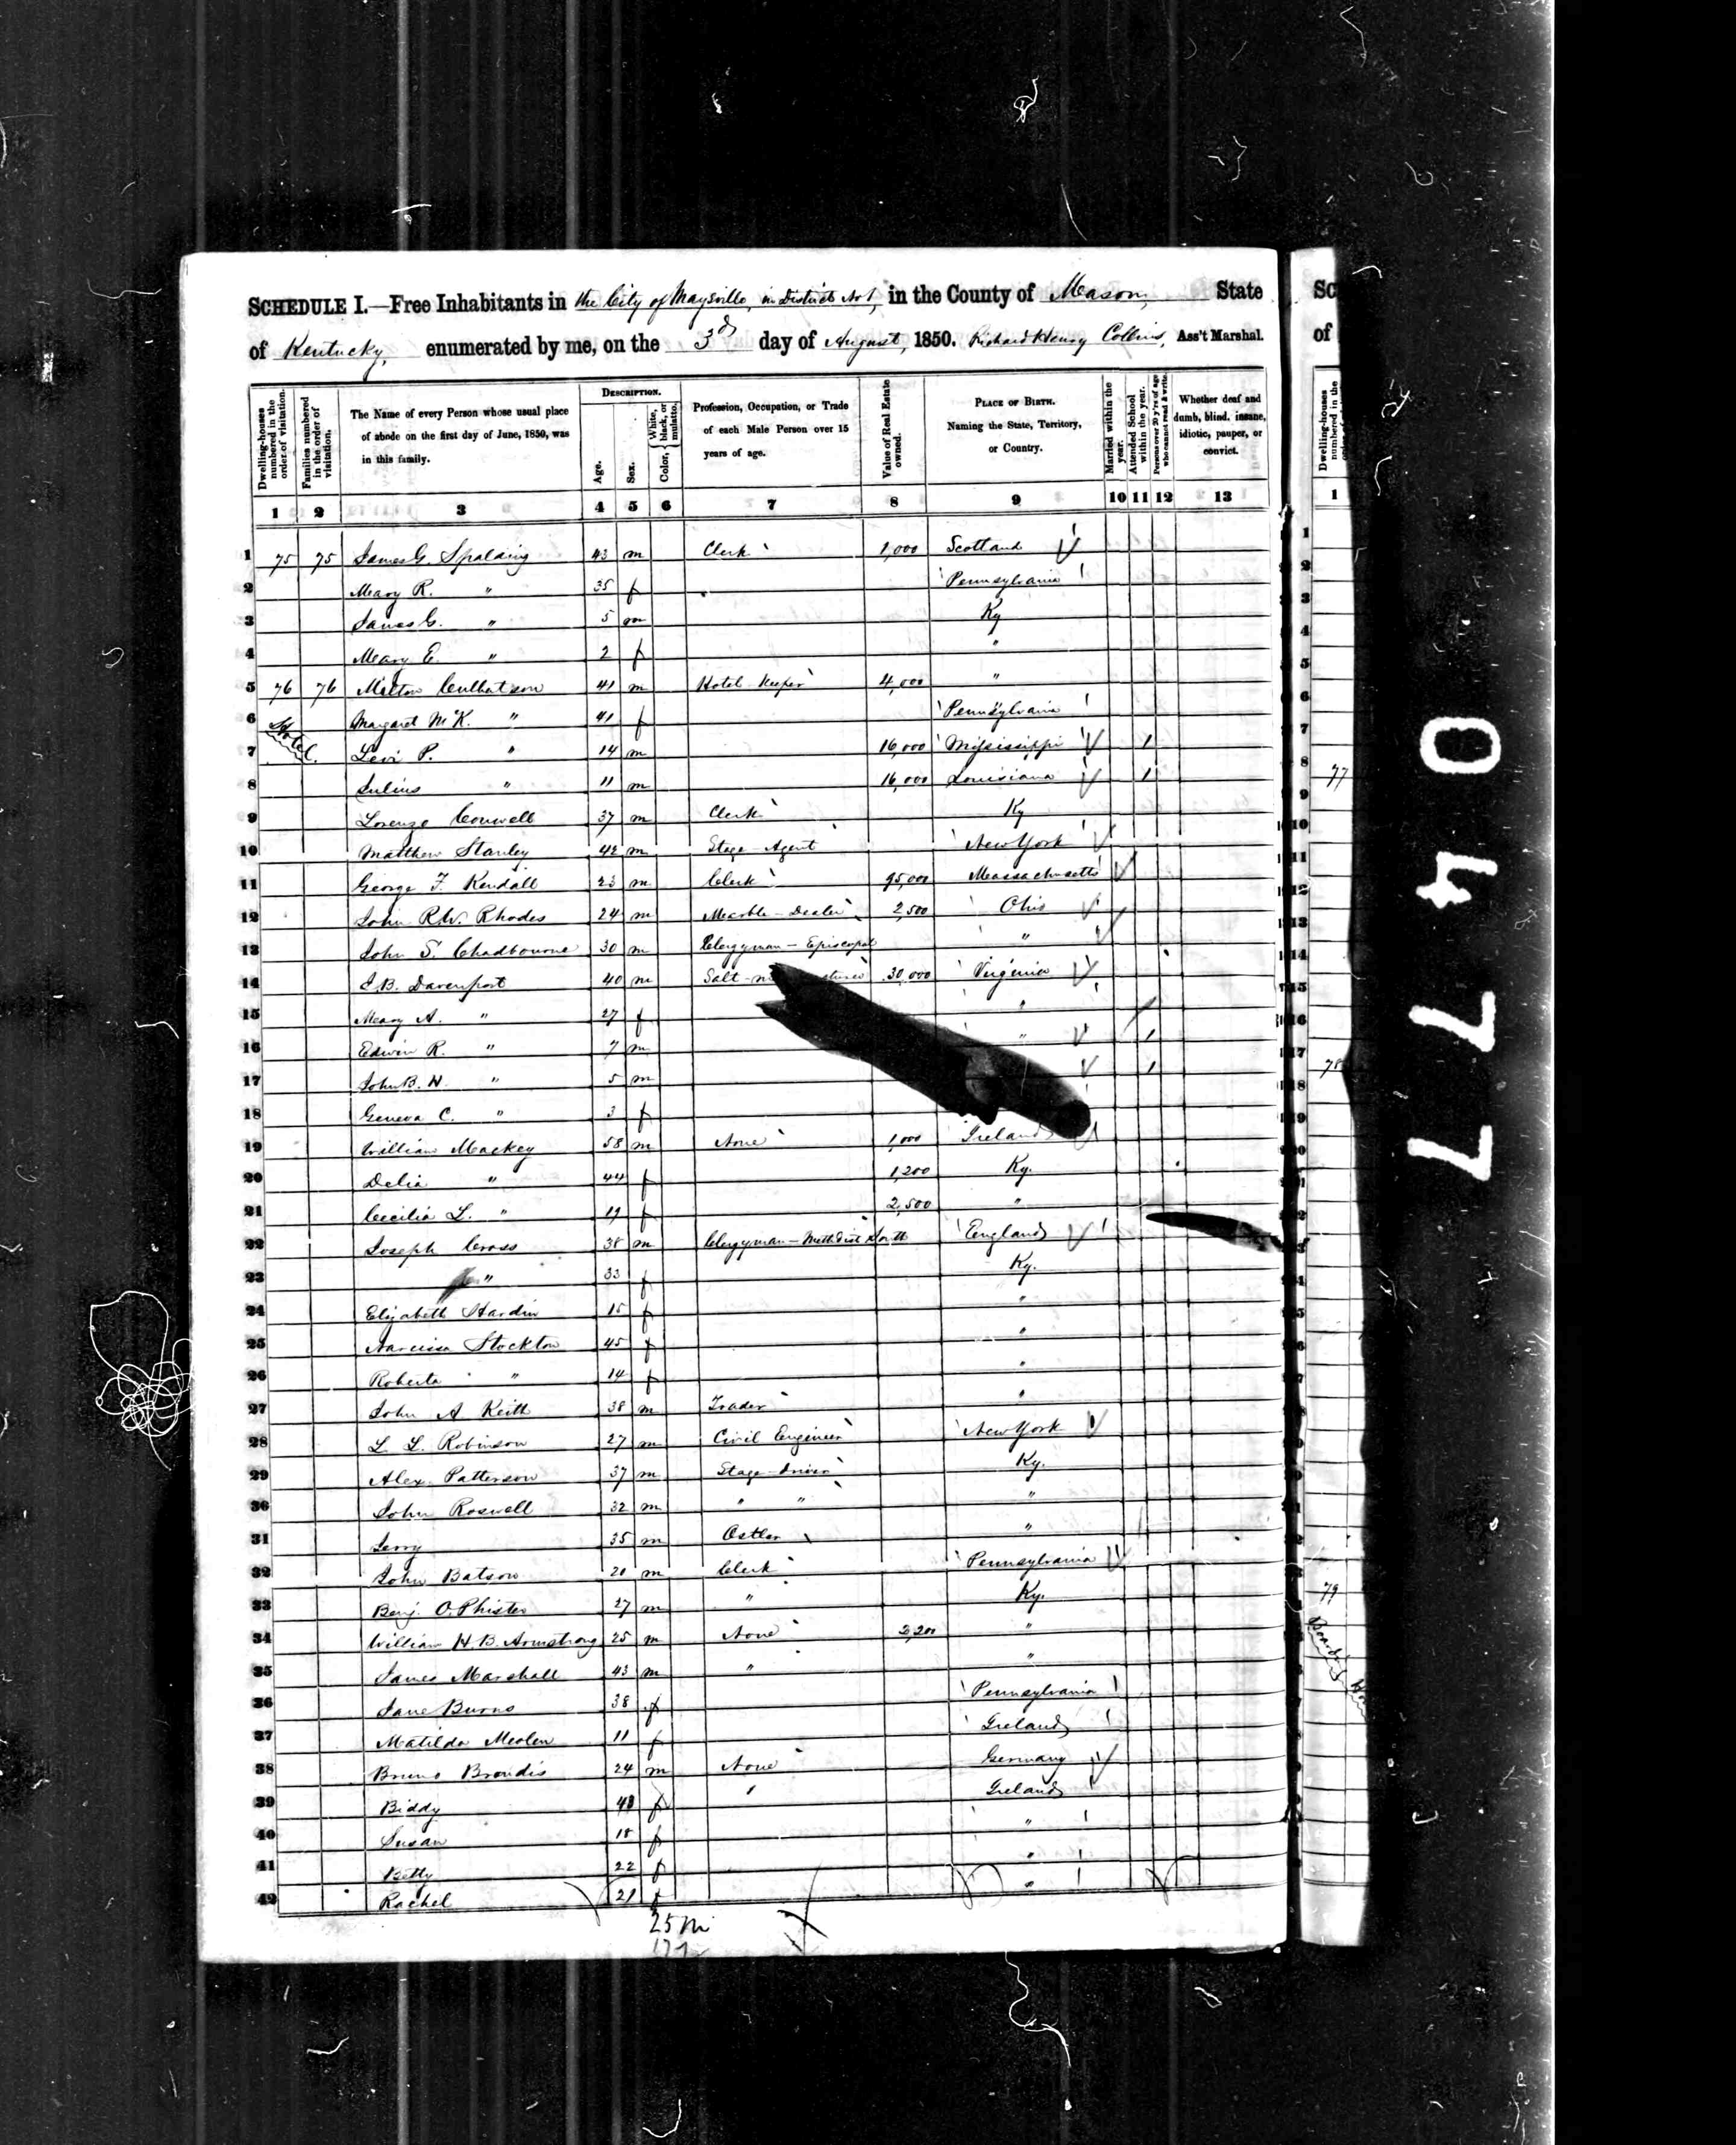 SCHEDULE I.—Free Inhabitants in the City of Maysville, in District No 1, in the County of Mason, State
of Kentucky, enumerated by me, on the 3d day of August, 1850. Richard Henry Collins, Ass't Marshal.
Dwelling-houses numbered in the order of visitation.
Families numbered in the order of visitation.
The Name of every Person whose usual place of abode on the first day of June, 1850, was in this family.
DESCRIPTION.
Age.
Sex.
Color, White, black, or mulatto.
Profession, Occupation, or Trade of each Male Person over 15 years of age.
Value of Real Estate owned.
PLACE OF BIRTH. Naming the State, Territory, or Country.
Married within the year.
Attended School within the year.
Persons over 20 y'rs of age who cannot read & write.
Whether deaf and dumb, blind, insane, idiotic, pauper, or convict.
1 2 3 4 5 6 7 8 9 10 11 12 13
1 75 75 James G. Spalding 43 m Clerk 1,000 Scotland
2 Mary R. " 35 f Pennsylvania
3 James G. " 5 m Ky
4 Mary E. " 2 f "
5 76 76 Milton Culbertson 41 m Hotel Keeper 4,000 "
6 Hotel. Margaret McK. " 41 f Pennsylvania
7 Levi P. " 14 m 16,000 Mississippi 1
8 Julius " 11 m 16,000 Louisiana 1
9 Lorenzo Conwell 37 m Clerk Ky
10 Matthew Stanley 42 m Stage Agent New York
11 George F. Kendall 23 m Clerk 95,000 Massachusetts
12 John R.W. Rhodes 24 m Marble-Dealer 2,500 Ohio
13 John S. Chadbourne 30 m Clergyman - Episcopal "
14 J.B. Davenport 40 m Salt- 30,000 Virginia
15 Mary A. " 27 f "
16 Edwin R. " 7 m " 1
17 John B. H. " 5 m 1
18 Geneva C. " 3 f
19 William Mackey 58 m None 1,000 Ireland
20 Delia " 44 f 1,200 Ky.
21 Cecilia L. " 19 f 2,500 "
22 Joseph Cross 38 m Clergyman - Methodist South England
23 " 33 f Ky.
24 Elizabeth Hardin 15 f "
25 Narcissa Stockton 45 f "
26 Roberta " 14 f "
27 John A Keith 38 m Trader "
28 L. L. Robinson 27 m Civil Engineer New York
29 Alex. Patterson 37 m Stage-driver Ky.
30 John Roswell 32 m " " "
31 Jerry 35 m Ostler "
32 John Batson 20 m Clerk Pennsylvania
33 Benj. O. Phister 27 m " Ky.
34 William H. B. Armstrong 25 m None 3,200 "
35 James Marshall 43 m " "
36 Jane Burns 38 f Pennsylvania
37 Matilda 11 f Ireland
38 Bruno Brandis 24 m None Germany
39 Biddy 48 f Ireland
40 Susan 18 f "
41 Betty 22 f "
42 Rachel 21 f "
25 m
Sc
of
Dwelling-houses numbered in the
1
77
78
79
0477